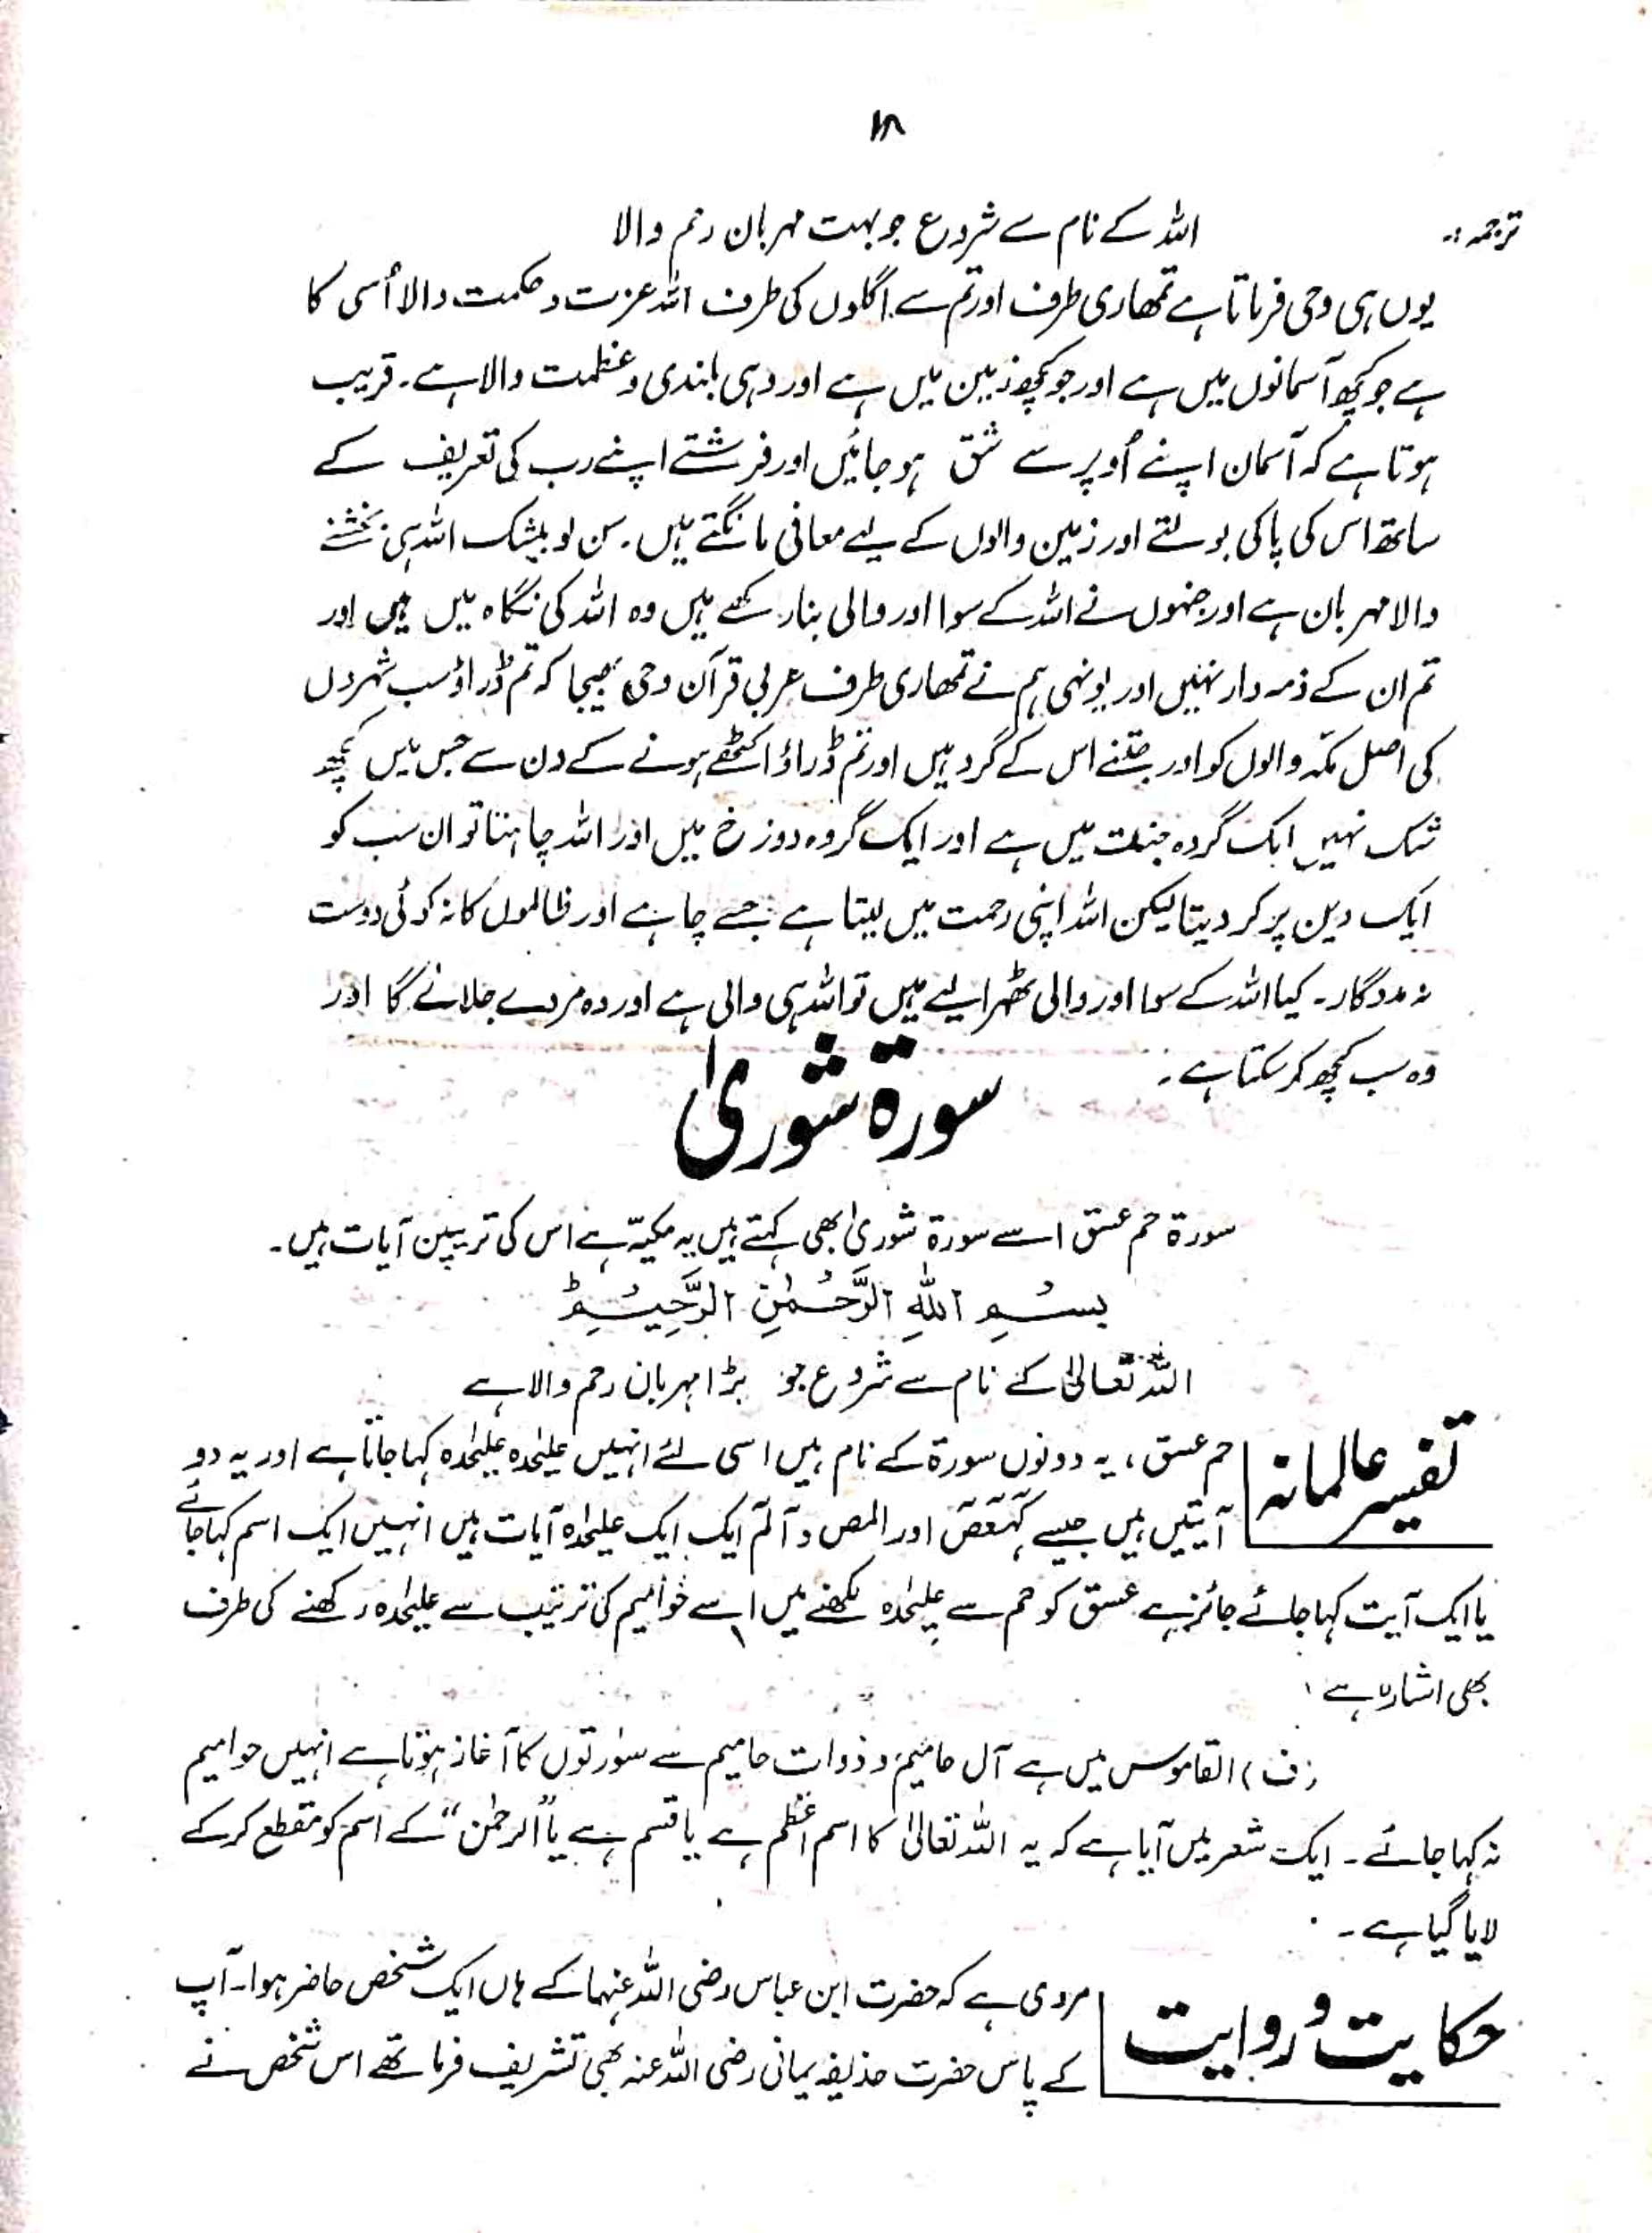 ترجمہ :۔ اللہ کے نام سے شروع جو بہت مہربان رحم والا
یوں ہی وحی فرماتا ہے تمھاری طرف اور تم سے اگلوں کی طرف اللہ عزت و حکمت والا اُسی کا
ہے جو کچھ آسمانوں میں ہے اور جو کچھ زمین میں ہے اور وہی بلندی و عظمت والا ہے۔ قریب
ہوتا ہے کہ آسمان اپنے اُوپر سے شق ہو جائیں اور فرشتے اپنے رب کی تعریف کے
ساتھ اس کی پاکی بولتے اور زمین والوں کے لیے معافی مانگتے ہیں۔ سن لو بیشک اللہ ہی بخشنے
والا مہربان ہے اور جنہوں نے اللہ کے سوا اور والی بنا رکھے ہیں وہ اللہ کی نگاہ میں ہیں اور
تم ان کے ذمہ دار نہیں اور یونہی ہم نے تمھاری طرف عربی قرآن وحی بھیجا کہ تم ڈراؤ سب شہروں
کی اصل مکّہ والوں کو اور جتنے اس کے گرد ہیں اور تم ڈراؤ اکٹھے ہونے کے دن سے جس میں کچھ
شک نہیں ایک گروہ جنت میں ہے اور ایک گروہ دوزخ میں اور اللہ چاہتا تو ان سب کو
ایک دین پر کر دیتا لیکن اللہ اپنی رحمت میں لیتا ہے جسے چاہے اور ظالموں کا نہ کوئی دوست
نہ مددگار۔ کیا اللہ کے سوا اور والی ٹھہرا لیے ہیں تو اللہ ہی والی ہے اور وہ مردے جلائے گا اور
وہ سب کچھ کر سکتا ہے۔
سورۃ شوریٰ
سورۃ حم عسق اسے سورۃ شوریٰ بھی کہتے ہیں یہ مکیہّ ہے اس کی تریپن آیات ہیں۔
بِسْمِ اللهِ الرَّحْمٰنِ الرَّحِيْمِؕ
اللہ تعالیٰ کے نام سے شروع جو بڑا مہربان رحم والا ہے
تفسیر عالمانہ
حم عسق، یہ دونوں سورۃ کے نام ہیں اسی لئے انہیں علیٰحدہ علیٰحدہ کہا جاتا ہے اور یہ دو
آیتیں ہیں جیسے کٓہٰیٰعٓصٓ اور المص و آلمٓ ایک ایک علیٰحدہ آیات ہیں انہیں ایک اسم کہا جائے
یا ایک آیت کہا جائے جائز ہے عسق کو حم سے علیٰحدہ لکھنے میں اسے حوامیم کی ترتیب سے علیٰحدہ رکھنے کی طرف
بھی اشارہ ہے۔
(ف) القاموس میں ہے آل حامیم و ذوات حامیم سے سورتوں کا آغاز ہوتا ہے انہیں حوامیم
نہ کہا جائے۔ ایک شعر میں آیا ہے کہ یہ اللہ تعالیٰ کا اسم اعظم ہے یا قسم ہے یا "الرحمٰن" کے اسم کو مقطع کر کے
لایا گیا ہے۔
حکایت و روایت
مروی ہے کہ حضرت ابن عباس رضی اللہ عنہما کے ہاں ایک شخص حاضر ہوا۔ آپ
کے پاس حضرت حذیفہ یمانی رضی اللہ عنہ بھی تشریف فرما تھے اس شخص نے